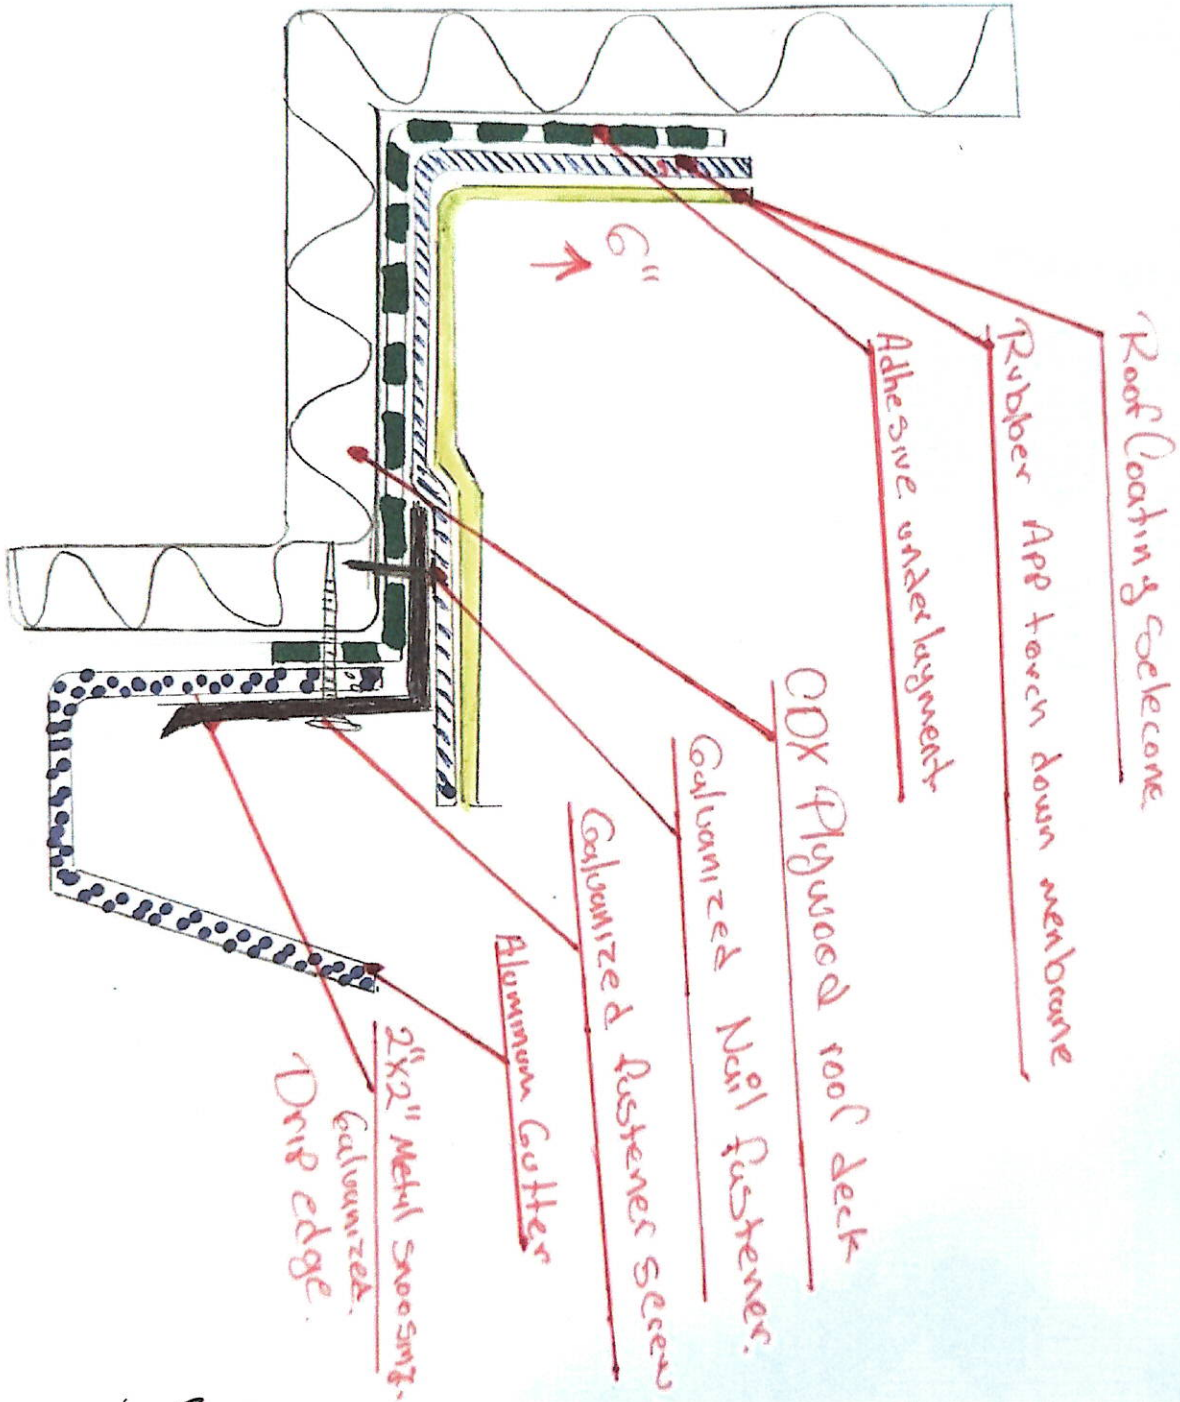 Roof Coating Selecone
Rubber App torch down menbrane
Adhesive underlayment
6"
CDX Plywood roof deck
Galvanized Nail fastener.
Galvanized fastener screw
Aluminum Gutter
2"x2" Metal
Galvanized.
Drip edge